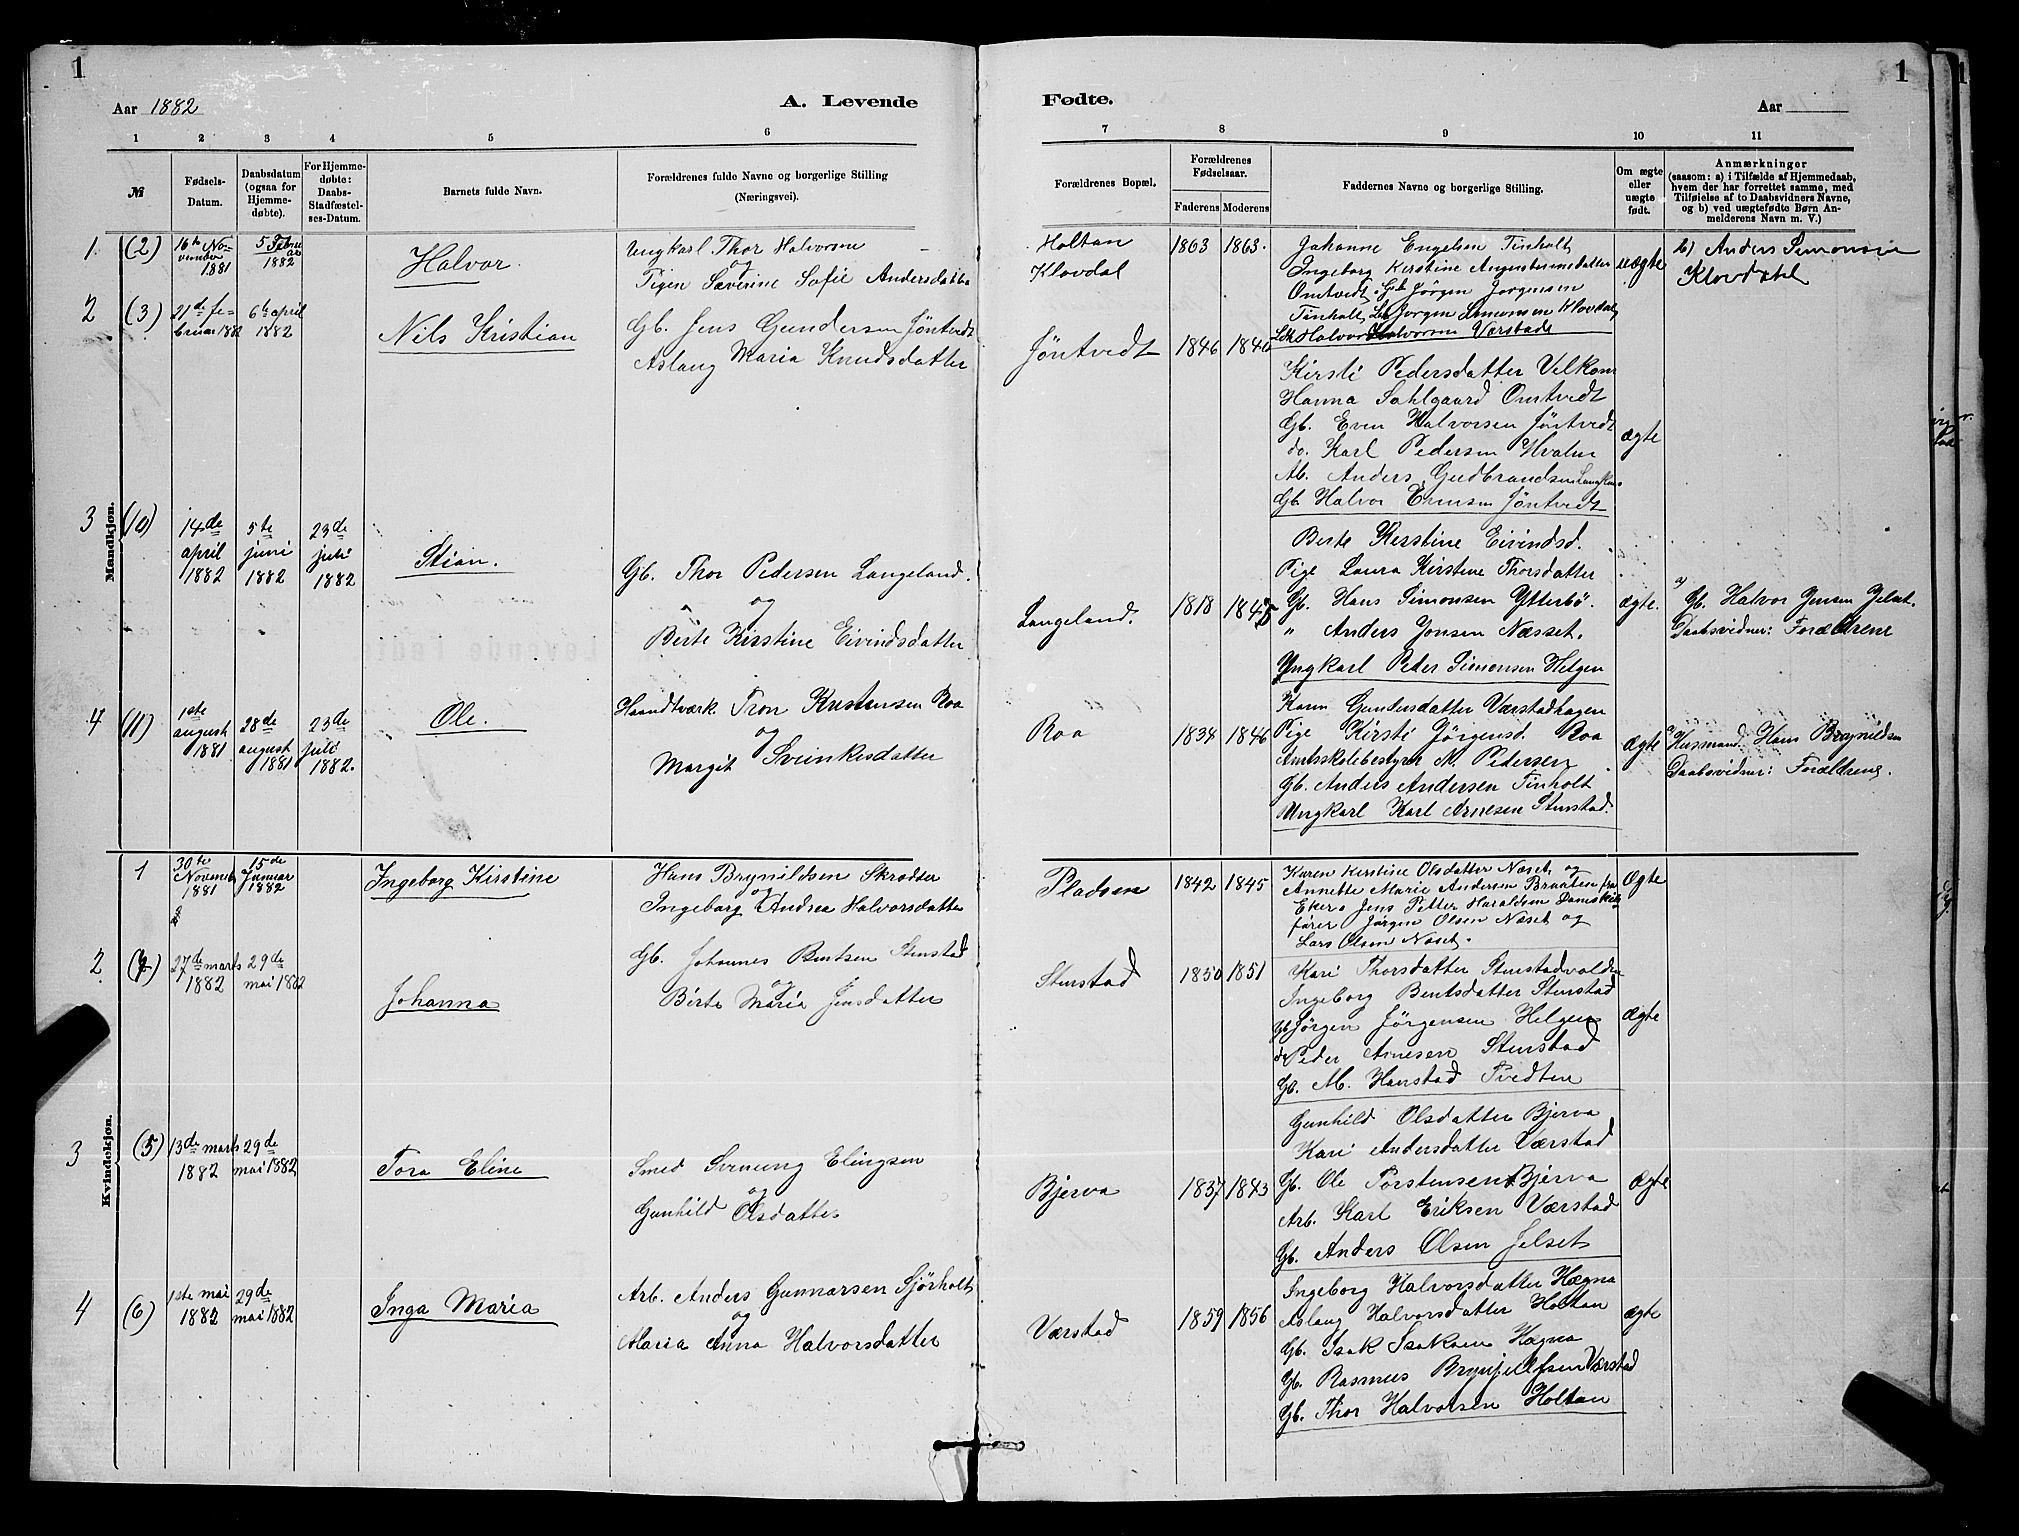 1
Aar 1882
A. Levende
1 2 3 4 5 6
№
Fødsels-Datum.
Daabsdatum (ogsaa for Hjemme-døbte).
For Hjemme-døbte: Daabs-Stadfæstel-ses-Datum.
Barnets fulde Navn.
Forældrenes fulde Navne og borgerlige Stilling (Næringsvei).
Mandkjøn.
1. (2)
16de No-
vember
1881
5 Febru
ar
1882
Halvor.
Ungkarl Thor Halvorsen
og
Pigen Severine Sofie Andersdatter
2 (3)
21de fe-
bruar 1882
6te april
1882
Nils Kristian
Gb. Jens Gundersen Jöntvedt
Aslaug Maria Knudsdatter
3 (10)
14de
april
1882
5te
juni
1882
23de
juli
1882
Stian.
Gb. Thor Pedersen Langeland.
og
Berte Kirstine Eivindsdatter
4 (11)
1ste
august
1881
28de
august
1881
23de
juli
1882.
Ole.
Haandtværk. Tron Kristensen Roa
og
Margit Sveinkesdatter
Kvindekjøn.
1
30te
Novemb
1881
15de
Januar
1882
Ingeborg Kirstine
Hans Brynildsen Skrødter
og
Ingeborg Andrea Halvorsdatter
2
27de marts
1882
29de
mai 1882
Johanna
Gb. Johannes Bentsen Stenstad
og
Birte Maria Jensdatter
3 (5)
13de marts
1882
29de
mai 1882
Tora Eline
Smed Svenung Elingsen
og
Gunhild Olsdatter
4 (6)
1ste mai
1882
29de
mai 1882
Inga Maria
Arb. Anders Gunnarsen Sjörholt
og
Maria Anna Halvorsdatter
1
Fødte.
Aar
7 8 9 10 11
Forældrenes Bopæl.
Forældrenes Fødselsaar.
Faderens Moderens
Faddernes Navne og borgerlige Stilling.
Om ægte eller uægte født.
Anmærkninger
(saasom: a) i Tilfælde af Hjemmedaab,
hvem der har forrettet samme, med
Tilføielse af to Daabsvidners Navne,
og b) ved uægtefødte Børn An-
melderens Navn m. V.)
Holtan
Klovdal
1863 1863.
Johanne Engelsen Tinholt
Ingeborg Kirstine Augustinusdatter
Omtvedt. Gb Jörgen Jorgensen
Tinholt, Lb Jorgen Simonsen Klovdal
Halvor Halvorsen Værstad
uægte
b) Anders Simonsen
Klovdal
Jöntvedt
1846 1840
Kirsti Pedersdatter Velkom
Hanna Sahlgaard Omtvedt
Gb. Even Halvorsen Jöntvedt
do. Karl Pedersen Hvalen
Ab. Anders Gudbrandsen
Gb Halvor Evensen Jöntvedt
ægte
Langeland.
1818 1845
Berte Kerstine Eivindsd.
Pige Laura Kirstine Thorsdatter
Gb. Hans Simonsen Ytterbö.
" Anders Jonsen Næsset.
Yngkarl Peder Simonsen Helgen
ægte.
a) Gb. Halvor Jensen Jelset.
Daabsvidner: Forældrene
Roa
1834 1846
Karen Gundersdatter Værstadhagen
Pige Kirsti Jörgensd. Roa
Amtsskolebestyrer N. Pedersen
Gb. Anders Andersen Tinholt
Ungkarl Karl Arnesen Stenstad.
ægte
a) Husmand Hans Brynildsen
Daabsvidner: Forældrene.
Pladsen
1842 1845
Karen Kirstine Olsdatter Næset og
Annette Marie Andersen Braaten fra
Eker. Jens Petter Haraldsen Damskibs
fører Jörgen Olsen Næset og
Lars Olsen Næset.
Ægte
Stenstad
1850 1851
Kari Thorsdatter Stenstadvolden
Ingeborg Bentsdatter Stenstad
Gb Jörgen Jörgensen Helgen
do Peder Arnesen Stenstad
Gb. M. Hanstad Tvedten
ægte
Bjerva
1837 1843
Gunhild Olsdatter Bjerva
Kari Andersdatter Værstad
Gb. Ole Torstensen Bjerva
Arb. Karl Eriksen Værstad
Gb. Anders Olsen Jelset
ægte
Værstad
1859 1856
Ingeborg Halvorsdatter Hægna
Aslaug Halvorsdatter Holtan
Gb. Isak Isaksen Hægna
Gb. Rasmus Brynjelfsen Værstad
Gb. Thor Halvorsen Holtan
ægte